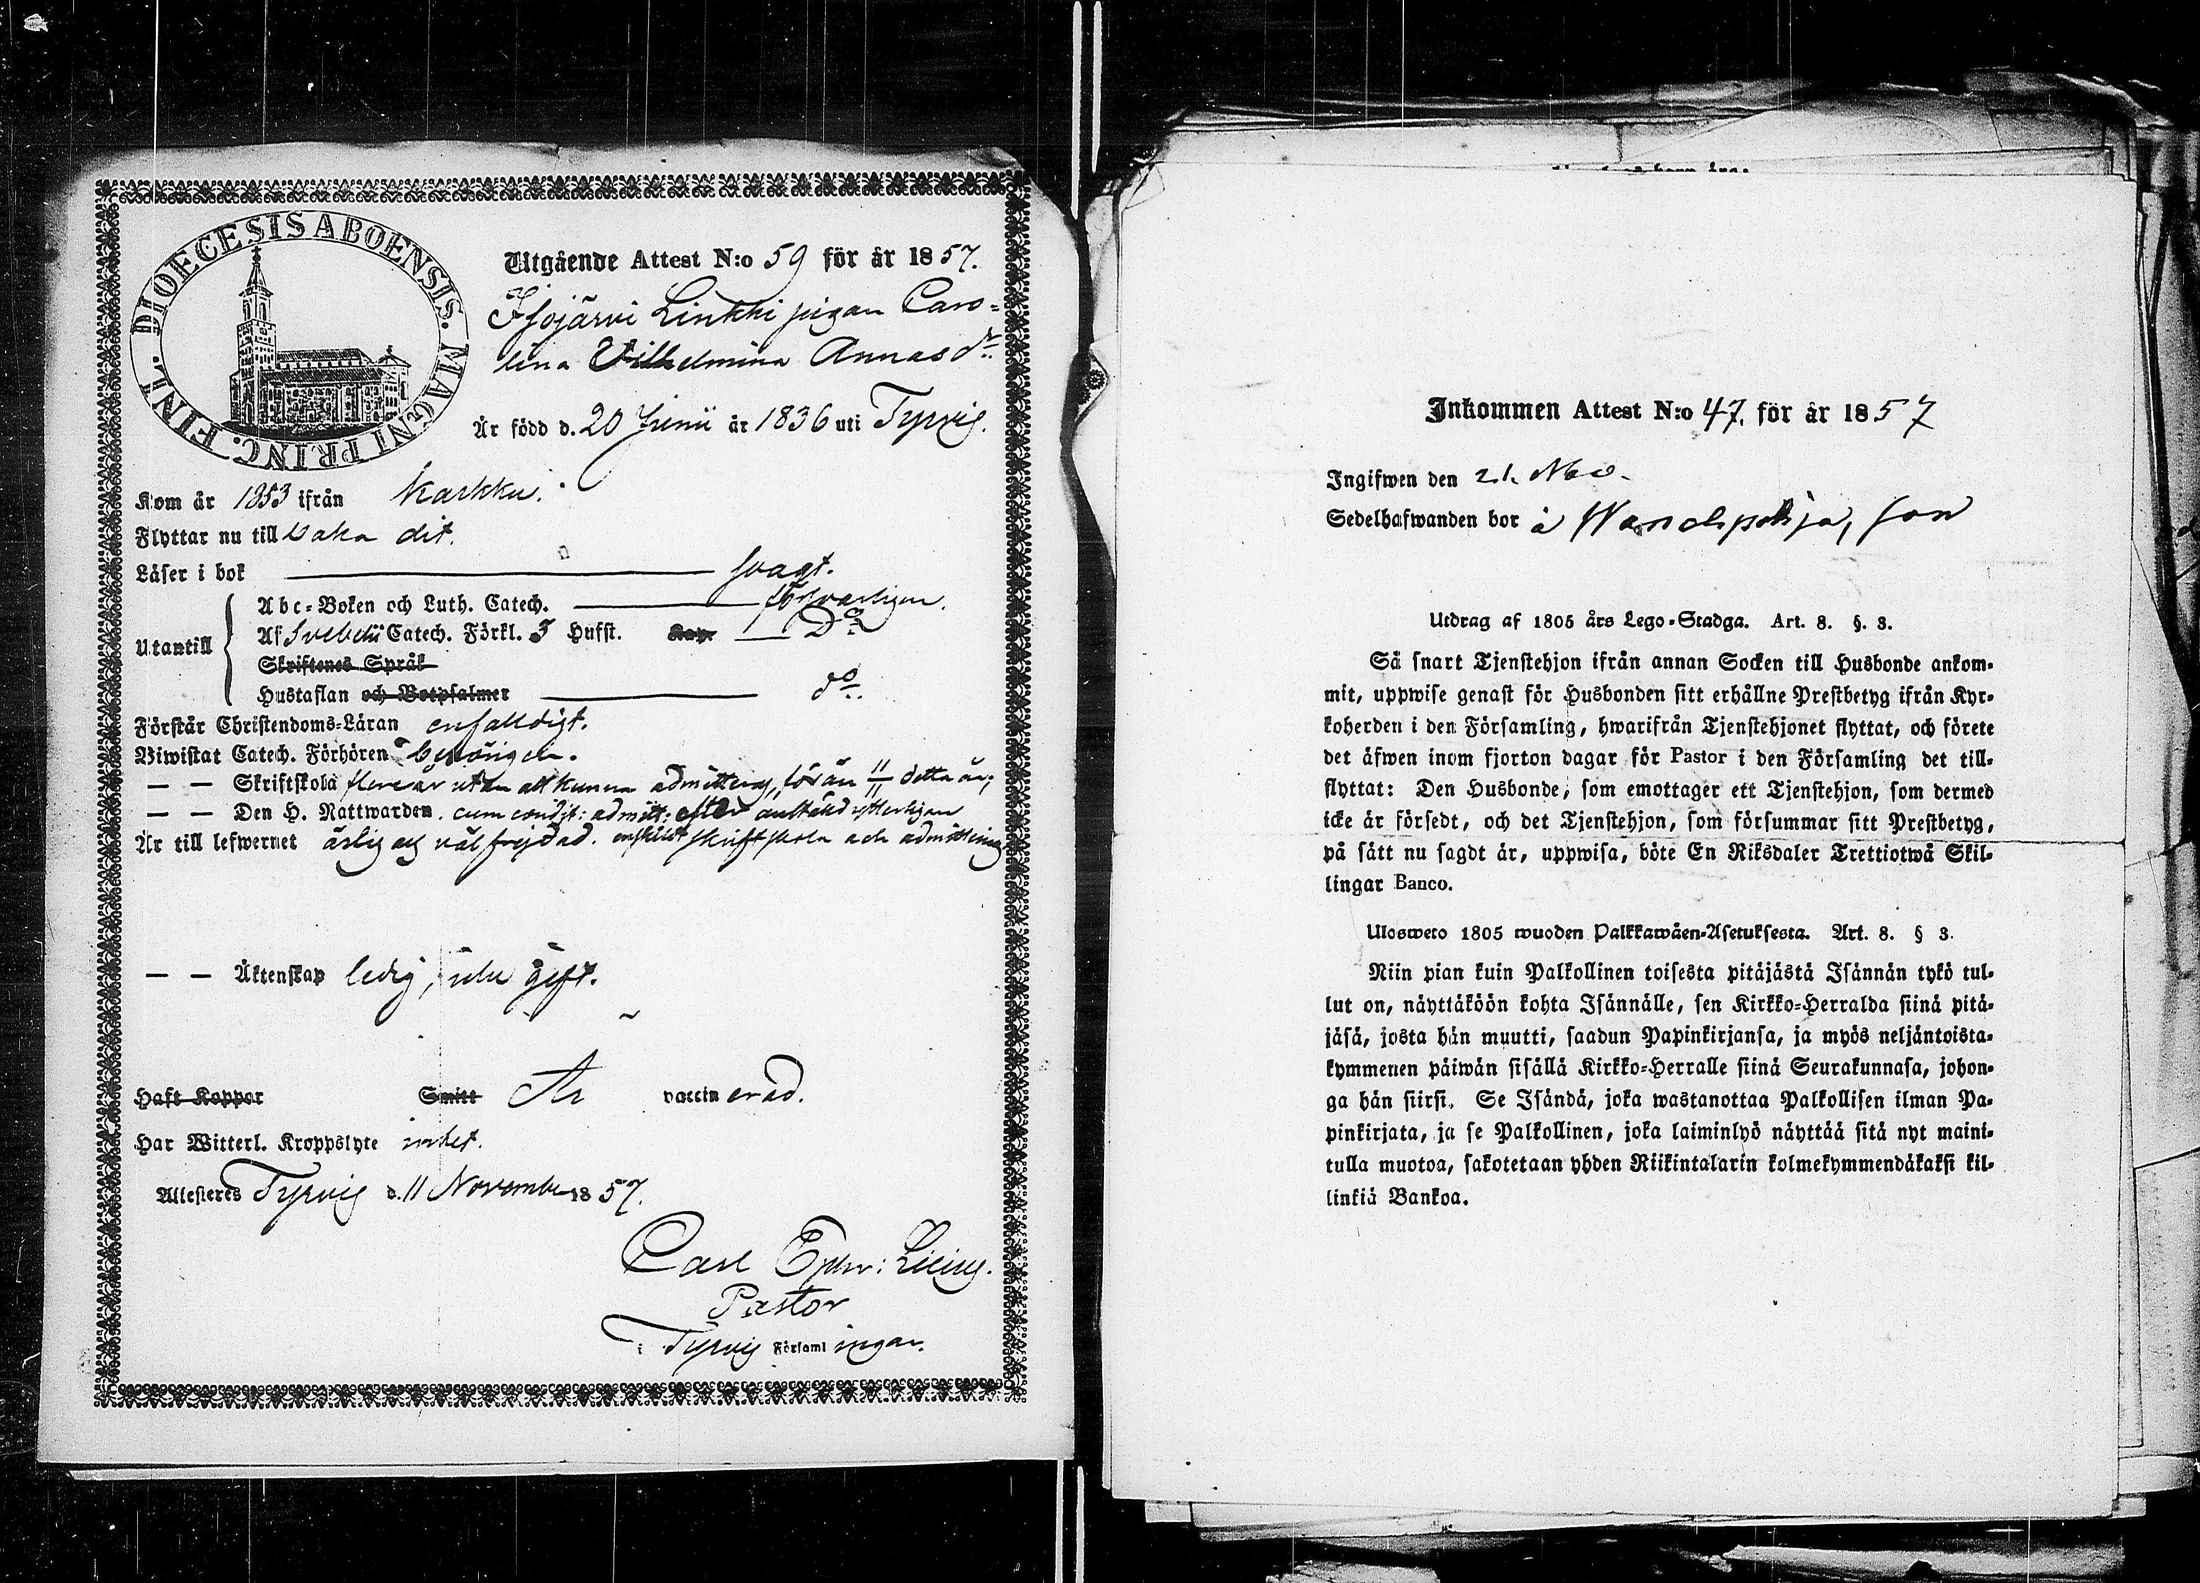 DIOECESIS ABOENSIS. MAGNI PRINC. FINL.
Utgående Attest N:o 59 för år 1857.
Isojärvi Linkki pigan Caro-
lina Vilhelmina Annasdr.
Är född d. 20 Junii år 1836 uti Tyrvis.
Kom år 1853 ifrån Karkku.
Flyttar nu till baka dit.
Läser i bok svagt.
Utantill
Abc-Boken och Luth. Catech. försvarligen.
Af Svebelii Catech. Förkl. 3 Hufst. Kap. Do
Skriftenes Språk
Hustaflan och Botpsalmer do.
Förstår Christendoms-Läran enfaldigt.
Biwistat Catech. Förhören behörigen.
— — Skriftskola flere år utan att kunna admitteras, förän 11/11 detta år;
— — Den H. Nattwarden. cum condit: admitt: efter
Är till lefwernet ärlig och väl frejdad. enskildt skriftskola och admittering
— — Äktenskap ledig, icke gift.
Haft Koppor Smitt Är vaccinerad.
Har Witterl. Kroppslyte intet.
Attesteres Tyrvis d. 11 November 1857.
Carl Ephr: Lilius.
Pastor
i Tyrvis Församlingar.
Inkommen Attest N:o 47. för år 1857
Ingifwen den 21. Nov.
Sedelhafwanden bor å
Utdrag af 1805 års Lego-Stadga. Art. 8. §. 3.
Så snart Tjenstehjon ifrån annan Socken till Husbonde ankom-
mit, uppwise genast för Husbonden sitt erhållne Prestbetyg ifrån Kyr-
koherden i den Församling, hwarifrån Tjenstehjonet flyttat, och förete
det äfwen inom fjorton dagar för Pastor i den Församling det till-
flyttat: Den Husbonde, som emottager ett Tjenstehjon, som dermed
icke är försedt, och det Tjenstehjon, som försummar sitt Prestbetyg,
på sätt nu sagdt är, uppwisa, böte En Riksdaler Trettiotwå Skil-
lingar Banco.
Ulosweto 1805 wuoden Palkkawäen-Asetuksesta. Art. 8. § 3.
Niin pian kuin Palkollinen toisesta pitäjästä Isännän tykö tul-
lut on, näyttäköön kohta Isännälle, sen Kirkko-Herralda siinä pitä-
jäsä, josta hän muutti, saadun Papinkirjansa, ja myös neljäntoista-
kymmenen päiwän sisällä Kirkko-Herralle siinä Seurakunnasa, johon-
ga hän siirsi. Se Isändä, joka wastanottaa Palkollisen ilman Pa-
pinkirjata, ja se Palkollinen, joka laiminlyö näyttää sitä nyt maini-
tulla muotoa, sakotetaan yhden Riikintalarin kolmekymmendäkaksi kil-
linkiä Bankoa.